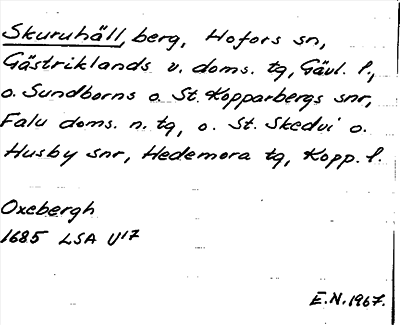 Skuruhäll, berg, Hofors sn,
Gästriklands v. doms. tg, Gävl. l.,
o. Sundborns o. St. Kopparbergs snr,
Falu doms. n. tg, o. St. Skedvi o.
Husby snr, Hedemora tg, Kopp. l.
Oxebergh
1685 LSA U17
E.N. 1967.